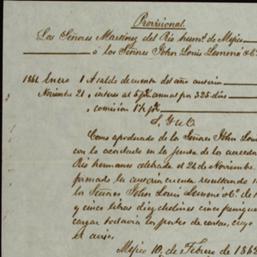 Provisional.
Los Señores Martinez del Rio herms. de Mejico
á los Señores John Louis Lemoné & C.
1861 Enero 1 A saldo de cuenta del año
Noviembre 21 " interes al 5 p% annual por 325 dias
" comision 1
S. Y. u O.
Como apoderado de los Señores John Louis
con lo acordado en la junta de
Rio hermanos celebrada el 21 de Noviembre
formado la cuenta resultando
los Señores John Louis Lemoné & C. de
y cinco libras diez chelines cinco peniques
cargar todavia los portes de cartas, creyo
el aviso.
Mejico 10, de Febrero de 1862